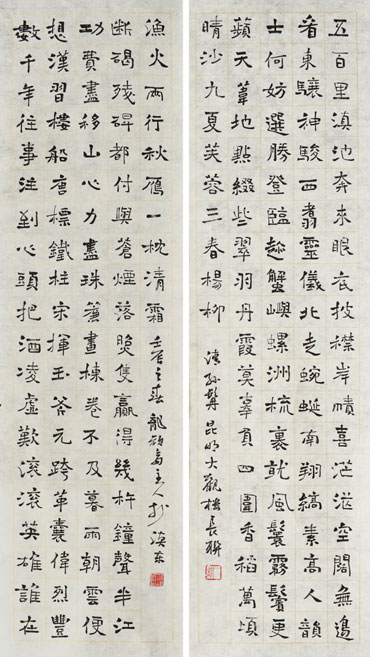 五百里滇池奔來眼底披襟岸幘喜茫茫空闊無邊
看東驤神駿西翥靈儀北走蜿蜒南翔縞素高人韻
士何妨選勝登臨趁蟹嶼螺洲梳裹就風鬟霧鬢更
蘋天葦地點綴些翠羽丹霞莫辜負四圍香稻萬頃
晴沙九夏芙蓉三春楊柳 清孫髯昆明大觀樓長聯
數千年往事注到心頭把酒凌虛歎滾滾英雄誰在
想漢習樓船唐標鐵柱宋揮玉斧元跨革囊偉烈豐
功費盡移山心力盡珠簾畫棟卷不及暮雨朝雲便
斷碣殘碑都付與蒼煙落照隻贏得幾杵鐘聲半江
漁火兩行秋雁一枕清霜 之春 主人抄